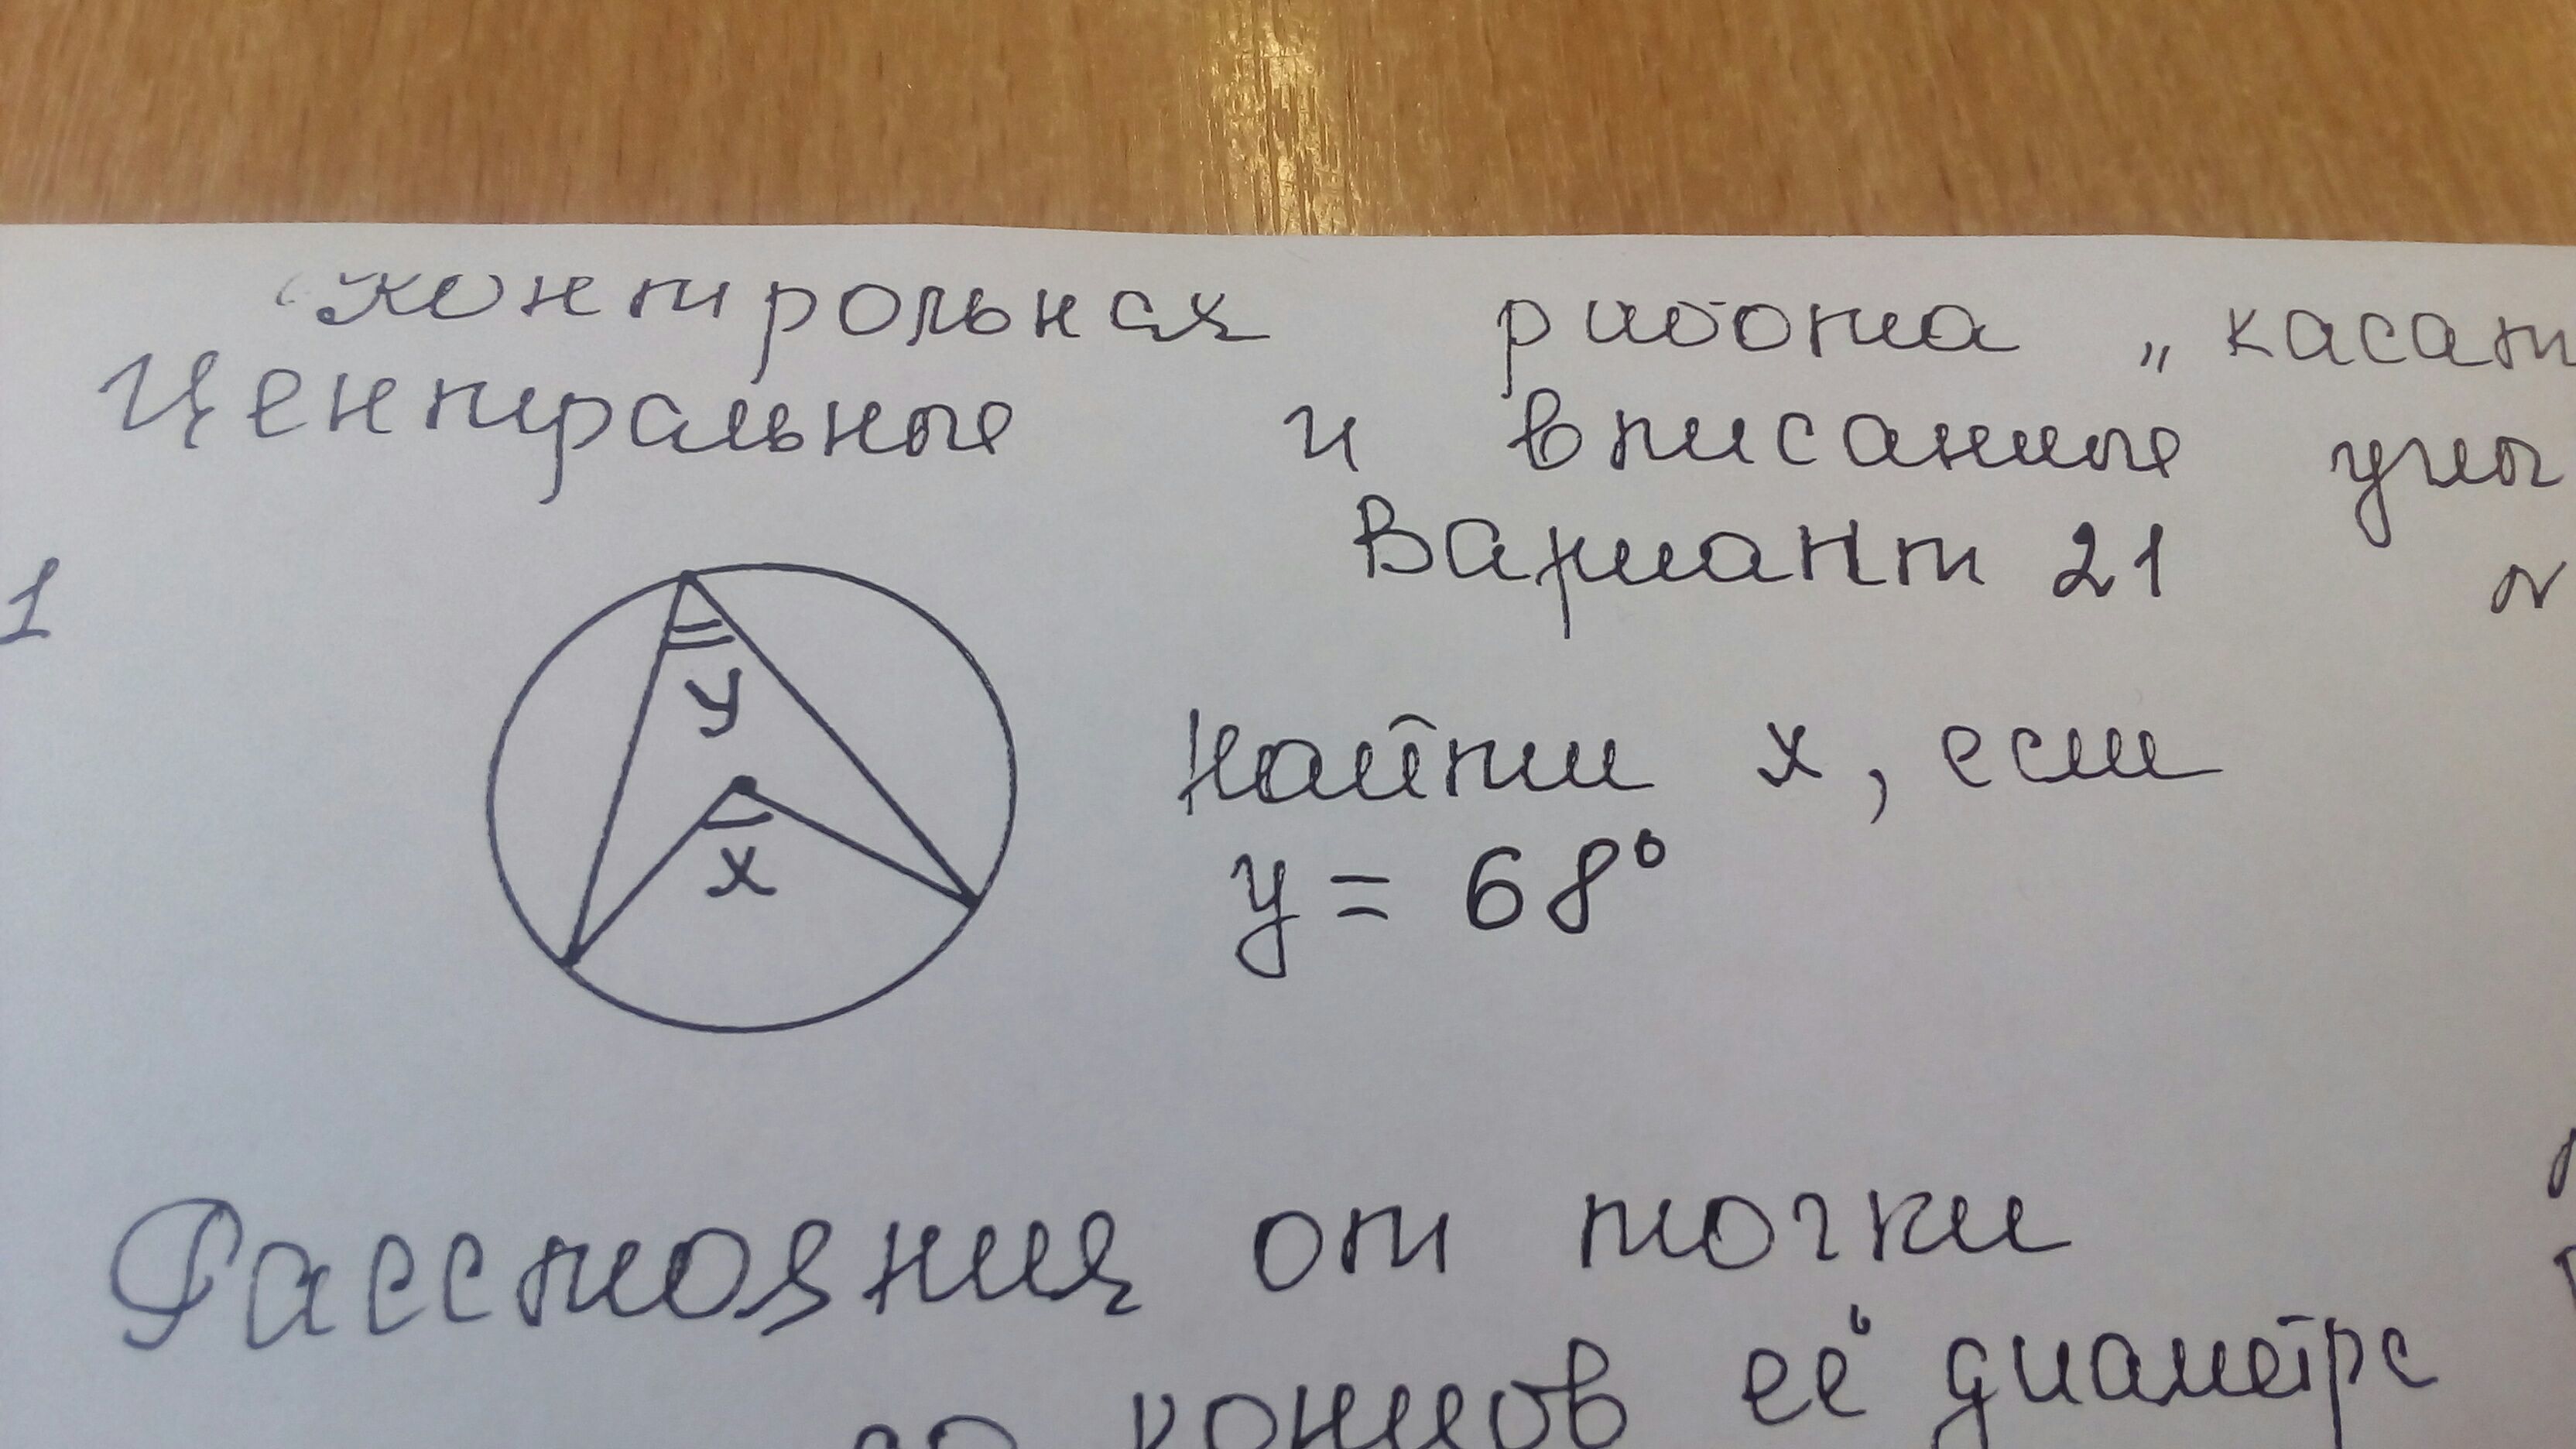 Контрольная работа „касат
Центральные и вписанные углы
Вариант 21
1
y
x
Найти x, если
y = 68°
Расстояния от точки
до концов её диаметра